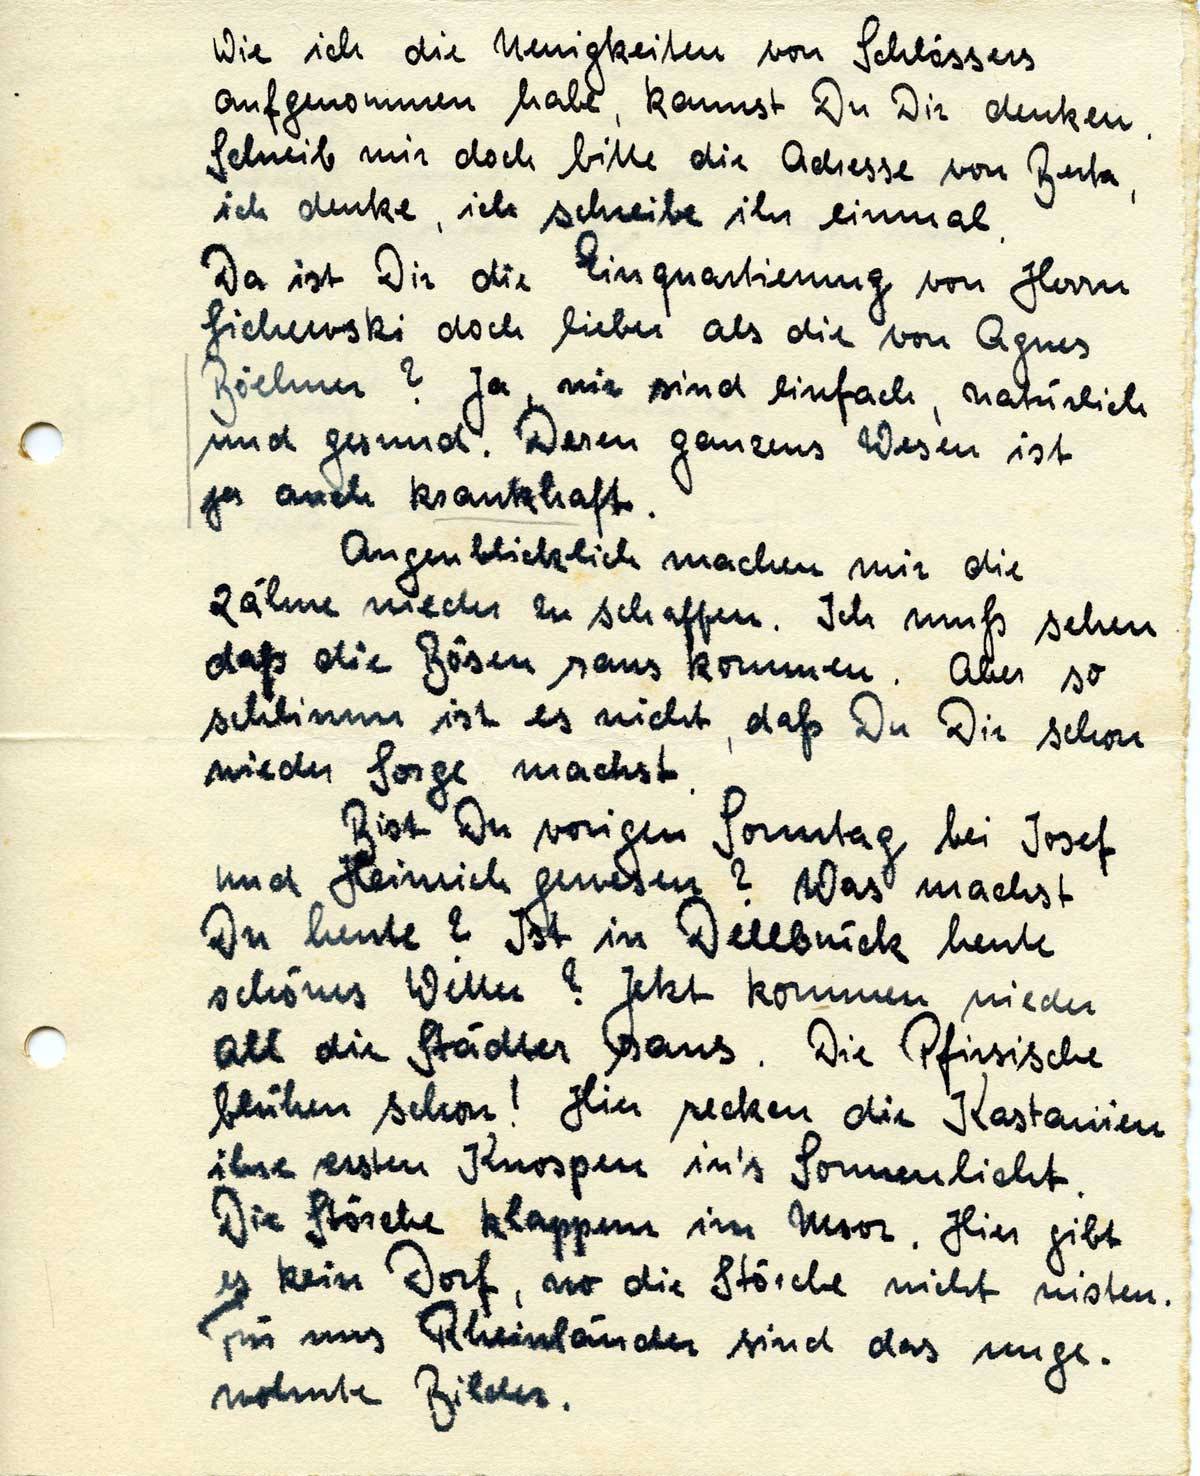 Wie ich die Neuigkeiten von Schlössers
aufgenommen habe, kannst Du Dir denken.
Schreib mir doch bitte die Adresse von Berta,
ich denke, ich schreibe ihr einmal.
Da ist Dir die Einquartierung von Herrn
Sichewski doch lieber als die von Agnes
Böhmer? Ja, wir sind einfach, natürlich
und gesund. Deren ganzens Wesen ist
ja auch krankhaft.
Augenblicklich machen mir die
Zähne wieder zu schaffen. Ich muß sehen
daß die Bösen raus kommen. Aber so
schlimm ist es nicht, daß Du Dir schon
wieder Sorge machst.
Bist Du vorigen Sonntag bei Josef
und Heinrich gewesen? Was machst
Du heute? Ist in Dellbrück heute
schönes Wetter? Jetzt kommen wieder
all die Städter raus. Die Pfirsische
blühen schon! Hier recken die Kastanien
ihre ersten Knospen in's Sonnenlicht.
Die Störche klappern im Moor. Hier gibt
es kein Dorf, wo die Störche nicht nisten.
Für uns Rheinländer sind das unge-
wohnte Bilder.